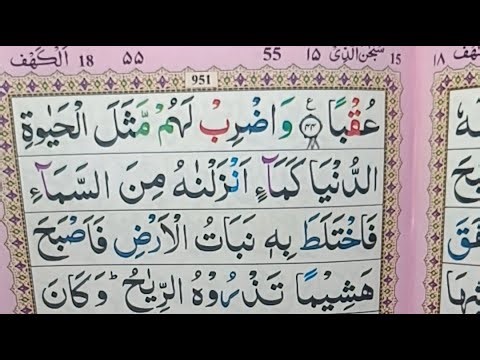 اَلْكَهْف 18 ۵۵ 55 ۱۵ سُبْحٰنَ الَّذِيْ 15
951
عُقْبًا ۴۴ ع وَاضْرِبْ لَهُمْ مَّثَلَ الْحَيٰوةِ
الدُّنْيَا كَمَآءٍ اَنْزَلْنٰهُ مِنَ السَّمَآءِ
فَاخْتَلَطَ بِهٖ نَبَاتُ الْاَرْضِ فَاَصْبَحَ
هَشِيْمًا تَذْرُوْهُ الرِّيٰحُ ؕ وَكَانَ